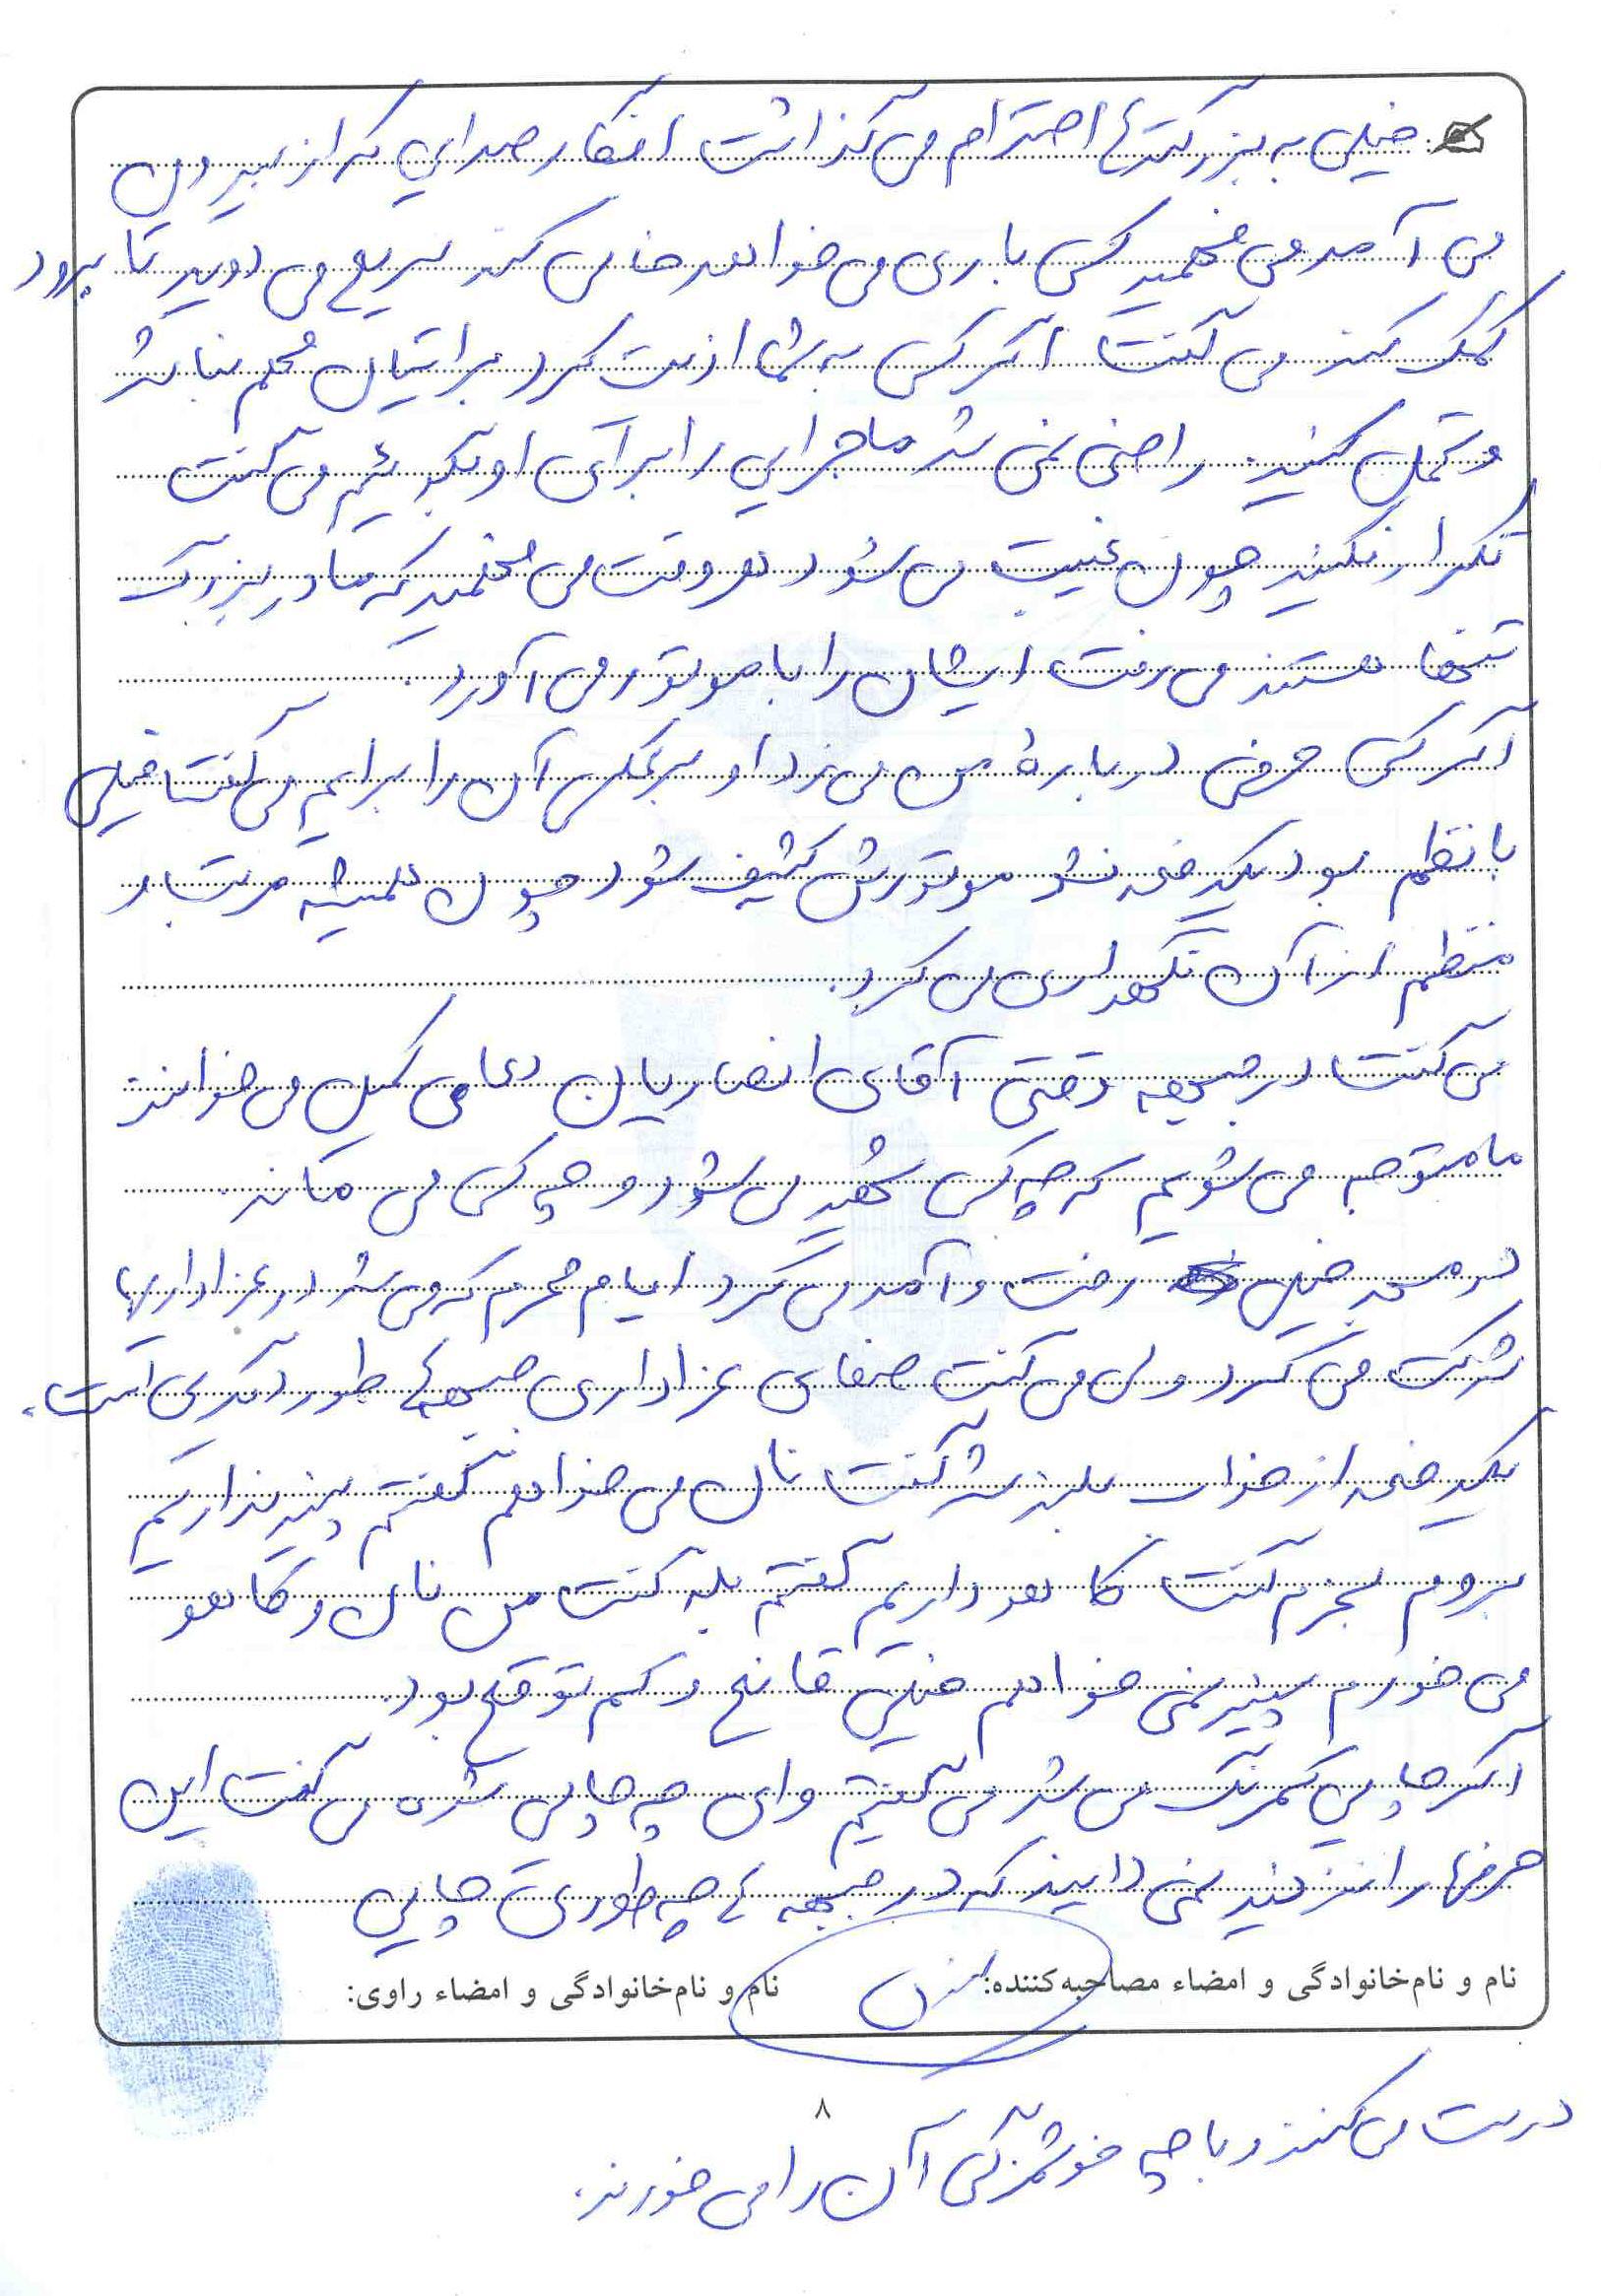 خیلی به بزرگترها احترام می گذاشت از کار صدایی که از بیرون
می آمد می فهمید کسی باری می خواهد خالی کند سریع می دوید تا برود
کمک کند می گفت اگر کسی به شما اذیت کرد برایتان مهم نباشد
و تحمل کنید. راضی نمی شد ماجرایی را برای او بگوییم می گفت
تکرار نکنید چون غیبت می شود هر وقت می فهمید که مادربزرگ
تنها هستند می رفت ایشان را با موتور می آورد.
اگر کسی حرفی درباره من می زد او برعکس آن را برایم می گفت خیلی
با نظم بود یکدفعه نشد موتورش کثیف شود چون همیشه مرتب و
منظم از آن نگهداری می کرد.
می گفت در جبهه وقتی آقای انصاریان دعای کمیل می خوانند
ما متوجه می شویم که چه کسی شهید می شود و چه کسی می ماند.
در مسجد خیلی رفت و آمد می کرد ایام محرم که می شد در عزاداریها
شرکت می کرد ولی می گفت صفای عزاداری جبهه ها طور دیگری است.
یکدفعه از خواب بلند شد گفت نان می خواهم گفتم پنیر نداریم
بروم بخرم گفت کاهو داریم گفتم بله گفت من نان و کاهو
می خورم پنیر نمی خواهم خیلی قانع و کم توقع بود.
اگر چایی کمرنگ می شد می گفتیم وای چه چایی شده می گفت این
حرفها را نزنید نمی دانید که در جبهه ها چه طوری چایی
نام و نام‌خانوادگی و امضاء مصاحبه‌کننده:
نام و نام‌خانوادگی و امضاء راوی:
۸
درست می کنند و با چه خوشمزگی آن را می خورند.